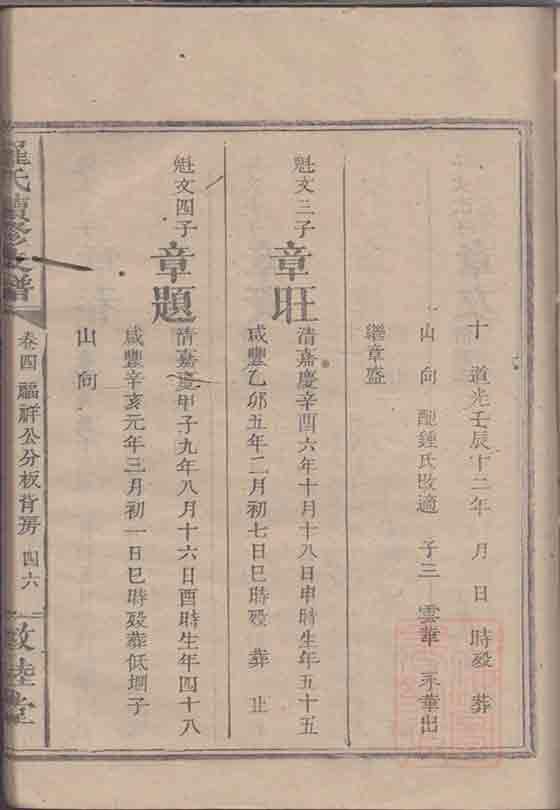 十 道光壬辰十二年 月 日 時殁 葬
山 向 配鍾氏改適 子三 雲華 承華出
繼章盛
魁文三子
章旺
清嘉慶辛酉六年十月十八日申時生年五十五
咸豐乙卯五年二月初七日巳時殁 葬 止
魁文四子
章題
清嘉慶甲子九年八月十六日酉時生年四十八
咸豐辛亥元年三月初一日巳時殁葬低塅子
山 向
羅氏續修支譜
卷四 福祥公分板背房 四六
敦睦堂